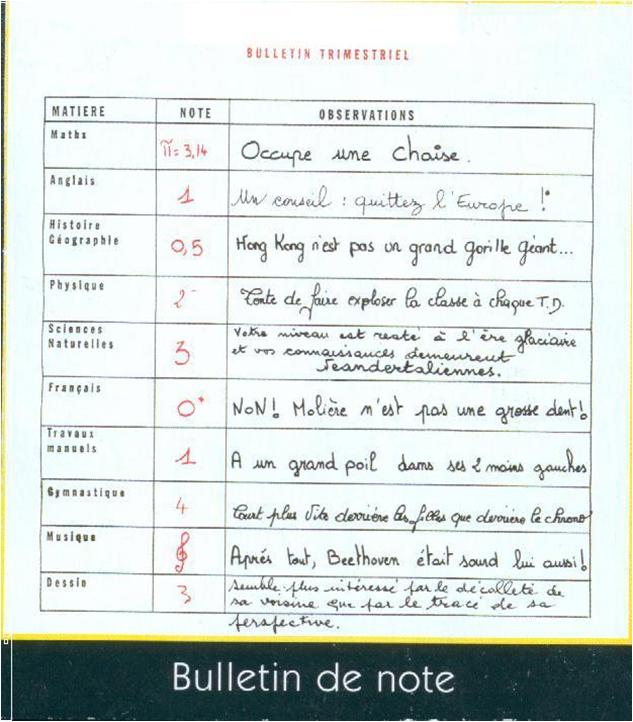 BULLETIN TRIMESTRIEL
MATIERE NOTE OBSERVATIONS
Maths π = 3,14 Occupe une chaise.
Anglais 1 Un conseil : quittez l'Europe !
Histoire
Géographie 0,5 Hong Kong n'est pas un grand gorille géant...
Physique 2⁻ Tente de faire exploser la classe à chaque T.D.
Sciences
Naturelles 3 Votre niveau est resté à l'ère glaciaire
et vos connaissances demeurent
Neandertaliennes.
Français 0⁺ NoN! Molière n'est pas une grosse dent!
Travaux
manuels 1 A un grand poil dans ses 2 mains gauches
Gymnastique 4 Court plus vite derrière les filles que derrière le chrono
Musique 𝄞 Après tout, Beethoven était sourd lui aussi!
Dessin 3 Semble plus intéressé par le décolleté de
sa voisine que par le tracé de sa
perspective.
Bulletin de note